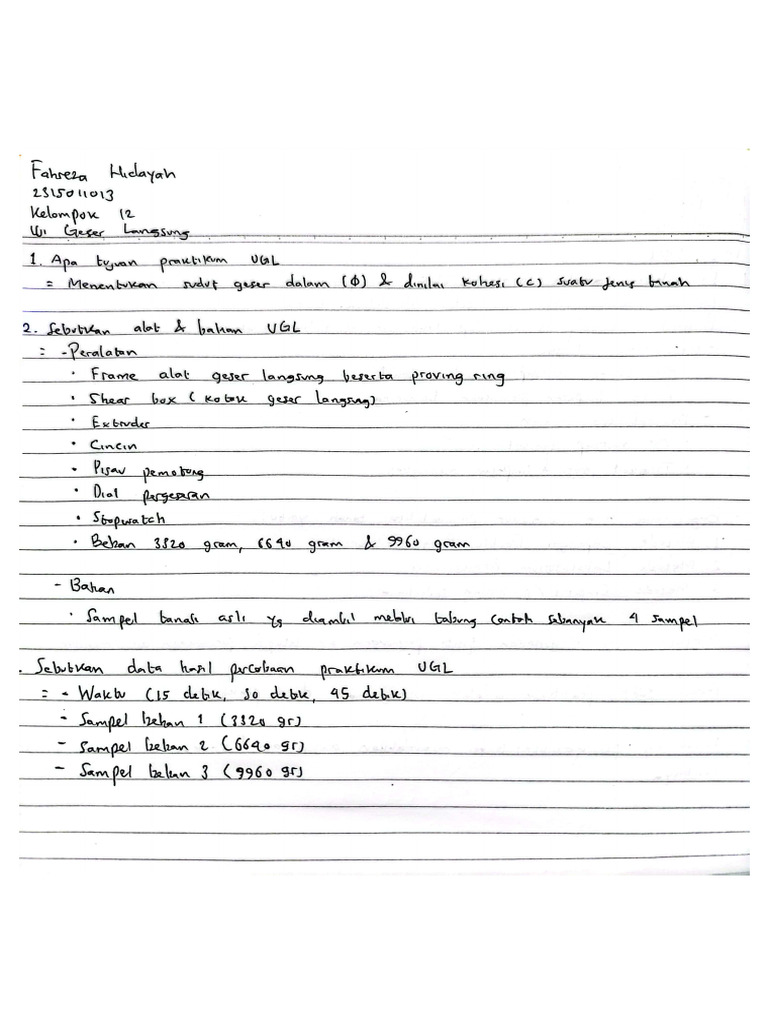 Fahreza Hidayah
2315011013
Kelompok 12
Uji Geser Langsung
1. Apa tujuan praktikum UGL
= Menentukan sudut geser dalam (Φ) & dinilai kohesi (c) suatu jenis tanah
2. Sebutkan alat & bahan UGL
= - Peralatan
• Frame alat geser langsung beserta proving ring
• Shear box (kotak geser langsung)
• Extruder
• Cincin
• Pisau pemotong
• Dial pergeseran
• Stopwatch
• Beban 3320 gram, 6640 gram & 9960 gram
- Bahan
• Sampel tanah asli yg diambil melalui tabung contoh sebanyak 4 sampel
. Sebutkan data hasil percobaan praktikum UGL
= - Waktu (15 detik, 30 detik, 45 detik)
- Sampel beban 1 (3320 gr)
- Sampel beban 2 (6640 gr)
- Sampel beban 3 (9960 gr)